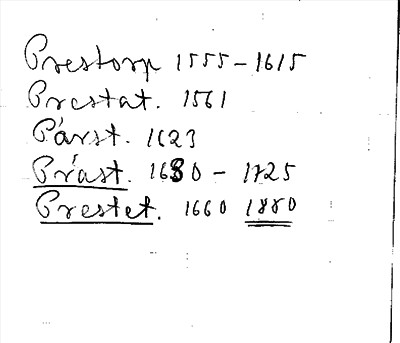 Prestorp 1555-1615
Prestat. 1561
Párst. 1623
Prást. 1680 - 1725
Prestet. 1660 1880